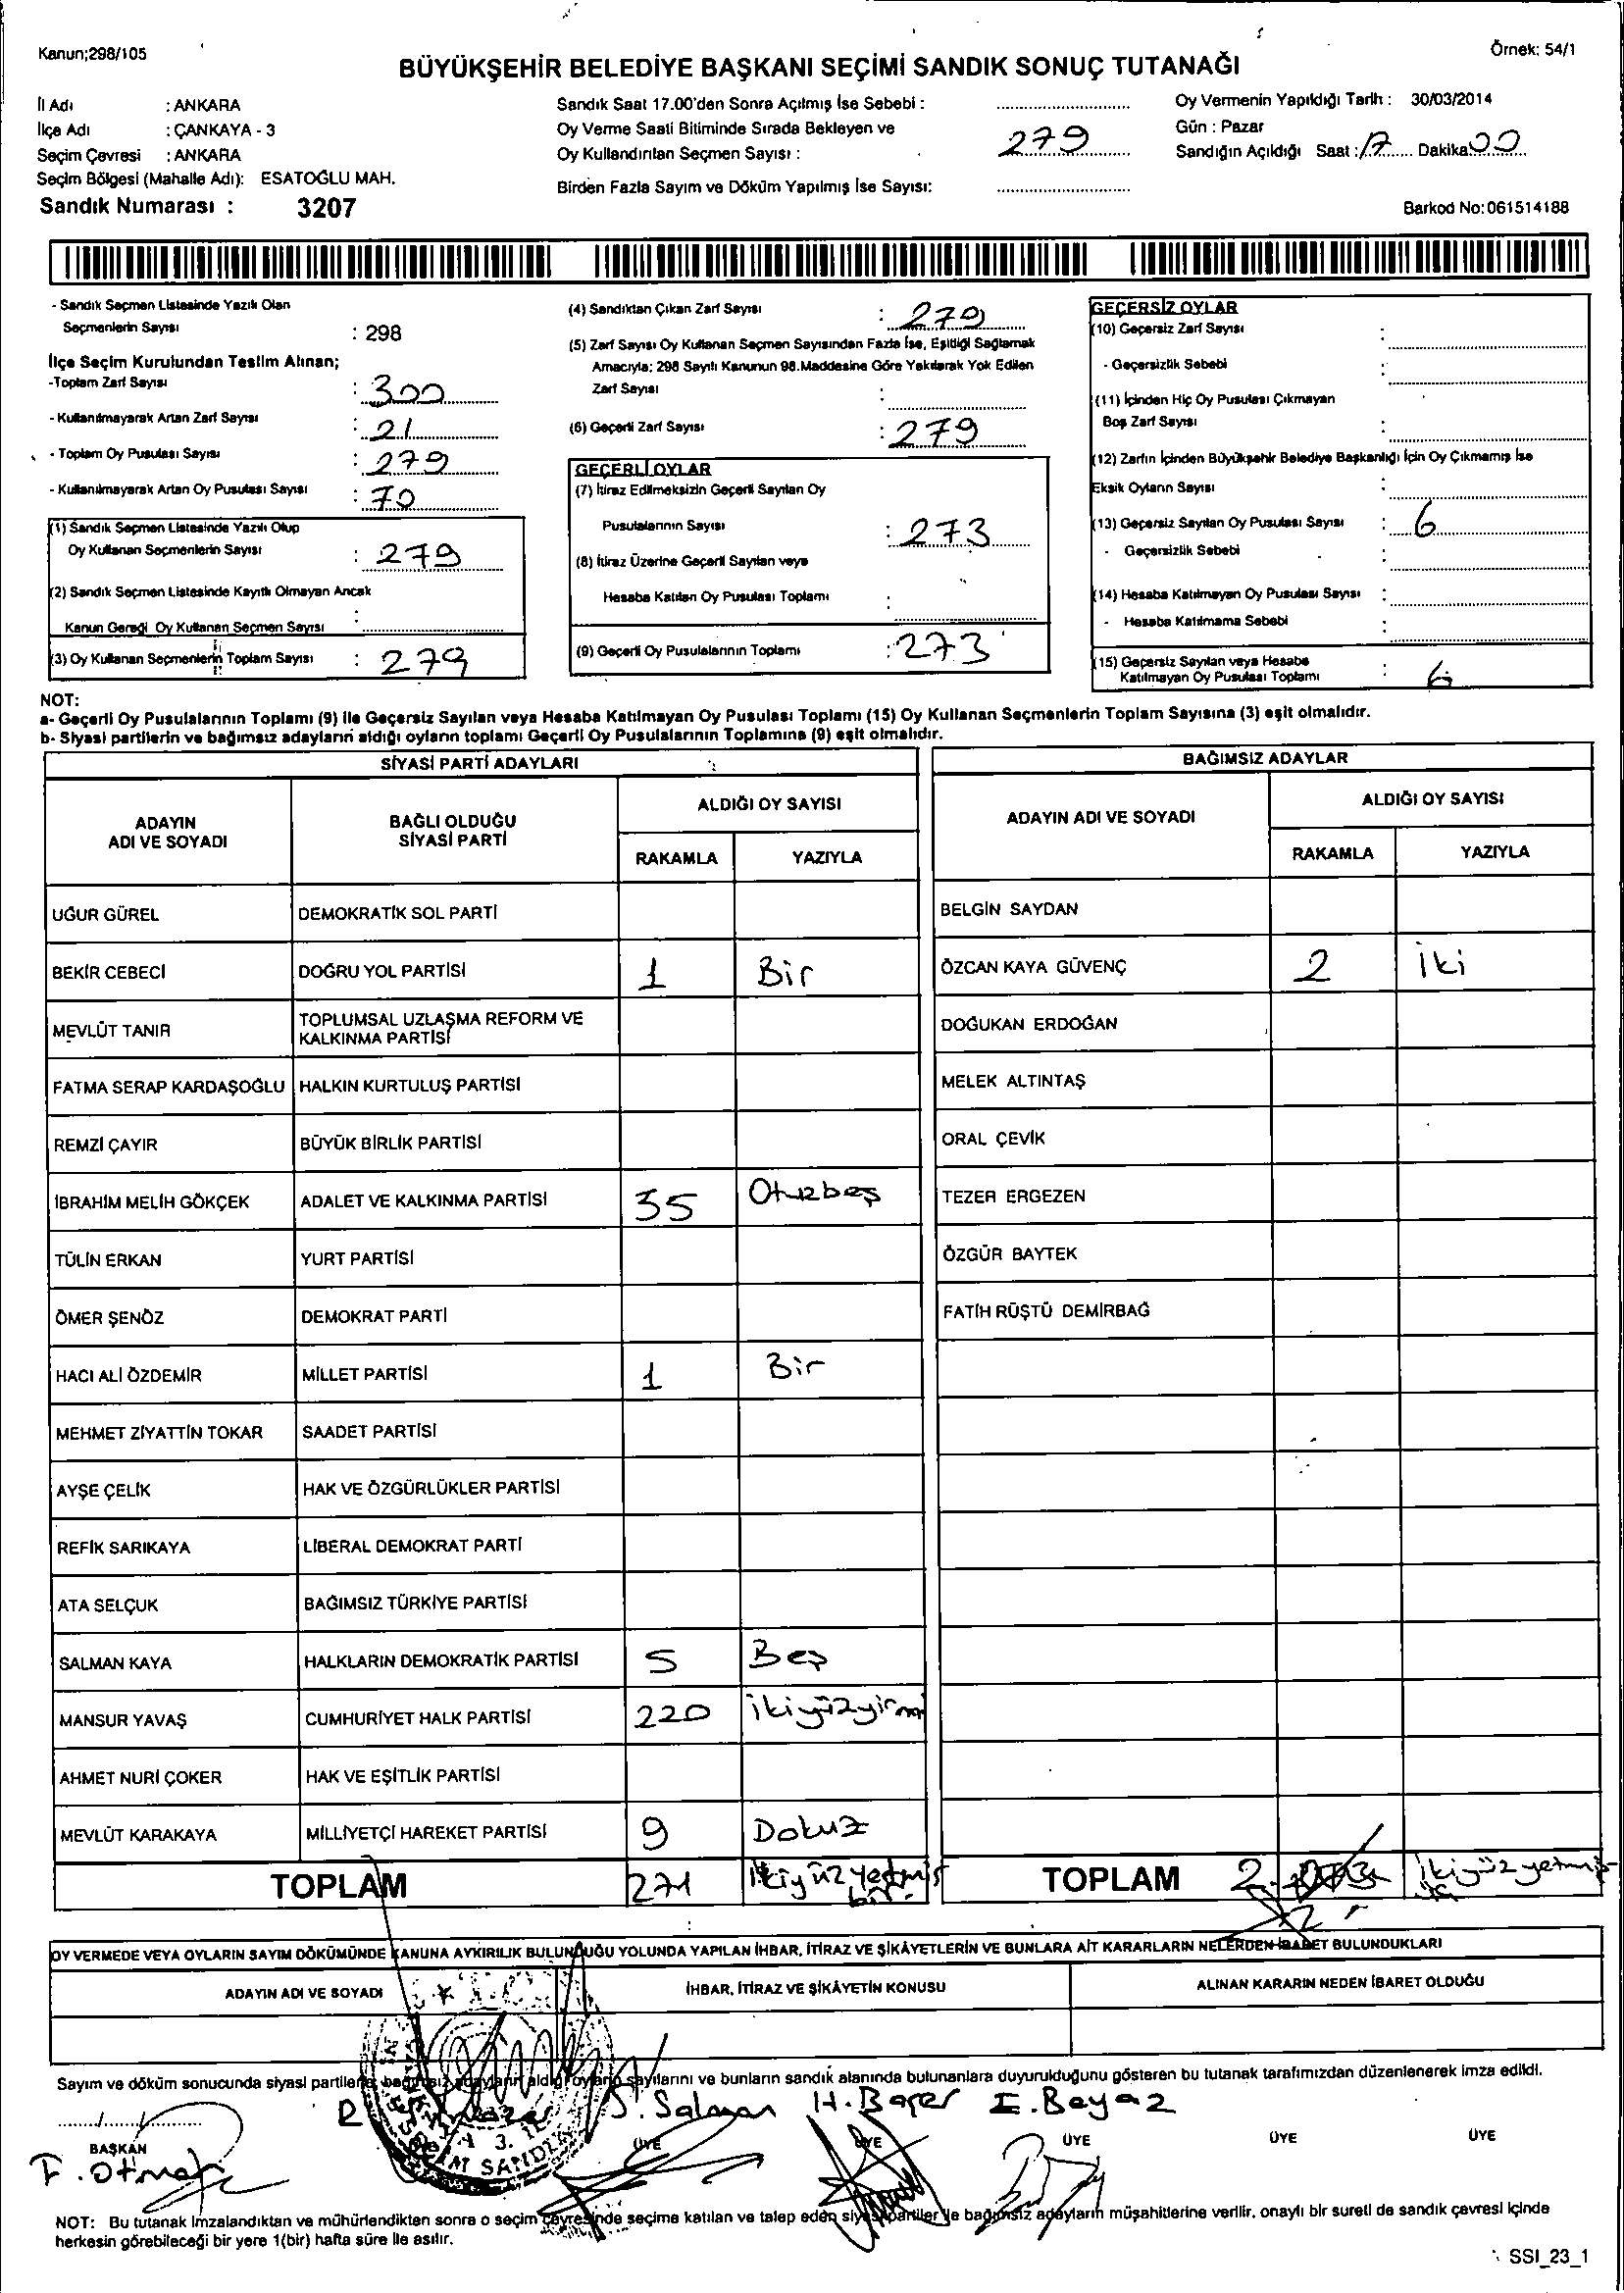 Kanun;298/105
Örnek: 54/1
BÜYÜKŞEHİR BELEDİYE BAŞKANI SEÇİMİ SANDIK SONUÇ TUTANAĞI
İl Adı : ANKARA
İlçe Adı : ÇANKAYA - 3
Seçim Çevresi : ANKARA
Seçim Bölgesi (Mahalle Adı): ESATOĞLU MAH.
Sandık Numarası : 3207
Sandık Saat 17.00'den Sonra Açılmış İse Sebebi :
Oy Verme Saati Bitiminde Sırada Bekleyen ve
Oy Kullandırılan Seçmen Sayısı : 279
Birden Fazla Sayım ve Döküm Yapılmış İse Sayısı:
Oy Vermenin Yapıldığı Tarih : 30/03/2014
Gün : Pazar
Sandığın Açıldığı Saat : 17 Dakika 00
Barkod No:061514188
- Sandık Seçmen Listesinde Yazılı Olan
Seçmenlerin Sayısı : 298
İlçe Seçim Kurulundan Teslim Alınan;
-Toplam Zarf Sayısı : 300
- Kullanılmayarak Artan Zarf Sayısı : 21
- Toplam Oy Pusulası Sayısı : 279
- Kullanılmayarak Artan Oy Pusulası Sayısı : 70
(1) Sandık Seçmen Listesinde Yazılı Olup
Oy Kullanan Seçmenlerin Sayısı : 279
(2) Sandık Seçmen Listesinde Kayıtlı Olmayan Ancak
Kanun Gereği Oy Kullanan Seçmen Sayısı :
(3) Oy Kullanan Seçmenlerin Toplam Sayısı : 279
(4) Sandıktan Çıkan Zarf Sayısı : 279
(5) Zarf Sayısı Oy Kullanan Seçmen Sayısından Fazla İse, Eşitliği Sağlamak
Amacıyla; 298 Sayılı Kanunun 98.Maddesine Göre Yakılarak Yok Edilen
Zarf Sayısı :
(6) Geçerli Zarf Sayısı : 279
GEÇERLİ OYLAR
(7) İtiraz Edilmeksizin Geçerli Sayılan Oy
Pusulalarının Sayısı : 273
(8) İtiraz Üzerine Geçerli Sayılan veya
Hesaba Katılan Oy Pusulası Toplamı :
(9) Geçerli Oy Pusulalarının Toplamı : 273
GEÇERSİZ OYLAR
(10) Geçersiz Zarf Sayısı :
- Geçersizlik Sebebi :
(11) İçinden Hiç Oy Pusulası Çıkmayan
Boş Zarf Sayısı :
(12) Zarfın İçinden Büyükşehir Belediye Başkanlığı İçin Oy Çıkmamış İse
Eksik Oyların Sayısı :
(13) Geçersiz Sayılan Oy Pusulası Sayısı : 6
- Geçersizlik Sebebi :
(14) Hesaba Katılmayan Oy Pusulası Sayısı :
- Hesaba Katılmama Sebebi :
(15) Geçersiz Sayılan veya Hesaba
Katılmayan Oy Pusulası Toplamı : 6
NOT:
a- Geçerli Oy Pusulalarının Toplamı (9) ile Geçersiz Sayılan veya Hesaba Katılmayan Oy Pusulası Toplamı (15) Oy Kullanan Seçmenlerin Toplam Sayısına (3) eşit olmalıdır.
b- Siyasi partilerin ve bağımsız adayların aldığı oyların toplamı Geçerli Oy Pusulalarının Toplamına (9) eşit olmalıdır.
SİYASİ PARTİ ADAYLARI
ADAYIN
ADI VE SOYADI
BAĞLI OLDUĞU
SİYASİ PARTİ
ALDIĞI OY SAYISI
RAKAMLA YAZIYLA
UĞUR GÜREL DEMOKRATİK SOL PARTİ
BEKİR CEBECİ DOĞRU YOL PARTİSİ 1 Bir
MEVLÜT TANIR TOPLUMSAL UZLAŞMA REFORM VE
KALKINMA PARTİSİ
FATMA SERAP KARDAŞOĞLU HALKIN KURTULUŞ PARTİSİ
REMZİ ÇAYIR BÜYÜK BİRLİK PARTİSİ
İBRAHİM MELİH GÖKÇEK ADALET VE KALKINMA PARTİSİ 35 Otuzbeş
TÜLİN ERKAN YURT PARTİSİ
ÖMER ŞENÖZ DEMOKRAT PARTİ
HACI ALİ ÖZDEMİR MİLLET PARTİSİ 1 Bir
MEHMET ZİYATTİN TOKAR SAADET PARTİSİ
AYŞE ÇELİK HAK VE ÖZGÜRLÜKLER PARTİSİ
REFİK SARIKAYA LİBERAL DEMOKRAT PARTİ
ATA SELÇUK BAĞIMSIZ TÜRKİYE PARTİSİ
SALMAN KAYA HALKLARIN DEMOKRATİK PARTİSİ 5 Beş
MANSUR YAVAŞ CUMHURİYET HALK PARTİSİ 220 ikiyüzyirmi
AHMET NURİ ÇOKER HAK VE EŞİTLİK PARTİSİ
MEVLÜT KARAKAYA MİLLİYETÇİ HAREKET PARTİSİ 9 Dokuz
TOPLAM 271 İkiyüzyetmiş
bir
BAĞIMSIZ ADAYLAR
ADAYIN ADI VE SOYADI
ALDIĞI OY SAYISI
RAKAMLA YAZIYLA
BELGİN SAYDAN
ÖZCAN KAYA GÜVENÇ 2 İki
DOĞUKAN ERDOĞAN
MELEK ALTINTAŞ
ORAL ÇEVİK
TEZER ERGEZEN
ÖZGÜR BAYTEK
FATİH RÜŞTÜ DEMİRBAĞ
TOPLAM 2 ikiyüzyetmiş
üç
OY VERMEDE VEYA OYLARIN SAYIM DÖKÜMÜNDE KANUNA AYKIRILIK BULUNDUĞU YOLUNDA YAPILAN İHBAR, İTİRAZ VE ŞİKÂYETLERİN VE BUNLARA AİT KARARLARIN NELERDEN İBARET BULUNDUKLARI
ADAYIN ADI VE SOYADI İHBAR, İTİRAZ VE ŞİKÂYETİN KONUSU ALINAN KARARIN NEDEN İBARET OLDUĞU
Sayım ve döküm sonucunda siyasi partilerle bağımsız adayların aldığı oyların sayılarını ve bunların sandık alanında bulunanlara duyurulduğunu gösteren bu tutanak tarafımızdan düzenlenerek imza edildi.
S. Salman H. Başer E. Beyaz
BAŞKAN ÜYE ÜYE ÜYE ÜYE ÜYE
NOT: Bu tutanak imzalandıktan ve mühürlendikten sonra o seçim çevresinde seçime katılan ve talep eden siyasi partiler ile bağımsız adayların müşahitlerine verilir, onaylı bir sureti de sandık çevresi içinde
herkesin görebileceği bir yere 1(bir) hafta süre ile asılır.
SSI_23_1